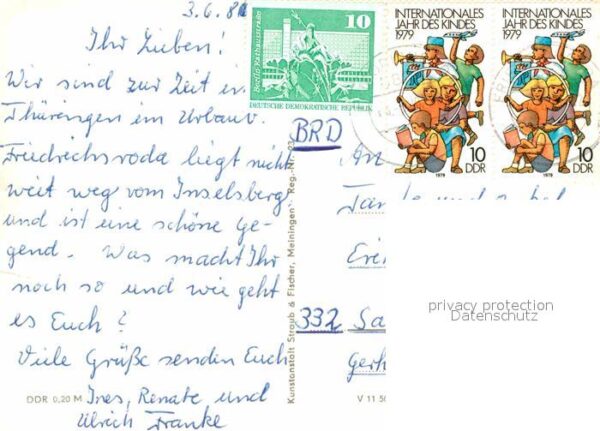 3.6.81
Ihr Lieben!
Wir sind zur Zeit in
Thüringen im Urlaub.
Friedrichsroda liegt nicht
weit weg vom Inselsberg
und ist eine schöne Ge-
gend. Was macht Ihr
noch so und wie geht
es Euch?
Viele Grüße senden Euch
Ines, Renate und
Ulrich Franke
DDR 0,20 M
Kunstanstalt Straub & Fischer, Meiningen Reg.-Nr.
V 11 50
Berlin, Rathausstraße
10
DEUTSCHE DEMOKRATISCHE REPUBLIK
INTERNATIONALES
JAHR DES KINDES
1979
10
DDR
1979
INTERNATIONALES
JAHR DES KINDES
1979
10
DDR
1979
BRD
An
Fam
332 Sa
Gerh
privacy protection
Datenschutz